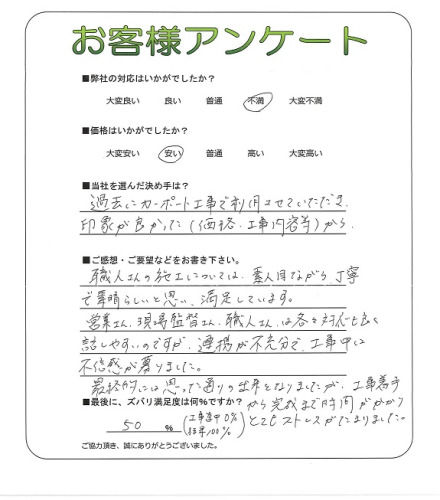 お客様アンケート
■弊社の対応はいかがでしたか？
大変良い 良い 普通 不満 大変不満
■価格はいかがでしたか？
大変安い 安い 普通 高い 大変高い
■当社を選んだ決め手は？
過去にカーポート工事で利用させていただき、
印象が良かった（価格・工事内容等）から、
■ご感想・ご要望などをお書き下さい。
職人さんの施工については、素人目ながら、丁寧
で素晴らしいと思い、満足しています。
営業さん、現場監督さん、職人さん、は各々対応も良く
話しやすいのですが、連携が不充分で、工事中に
不信感が募りました。
最終的には思った通りの出来となりましたが、工事着手
から完成まで時間がかかり
とてもストレスがたまりました。
■最後に、ズバリ満足度は何%ですか？
50 % （工事途中0% 結果100%）
ご協力頂き、誠にありがとうございました。